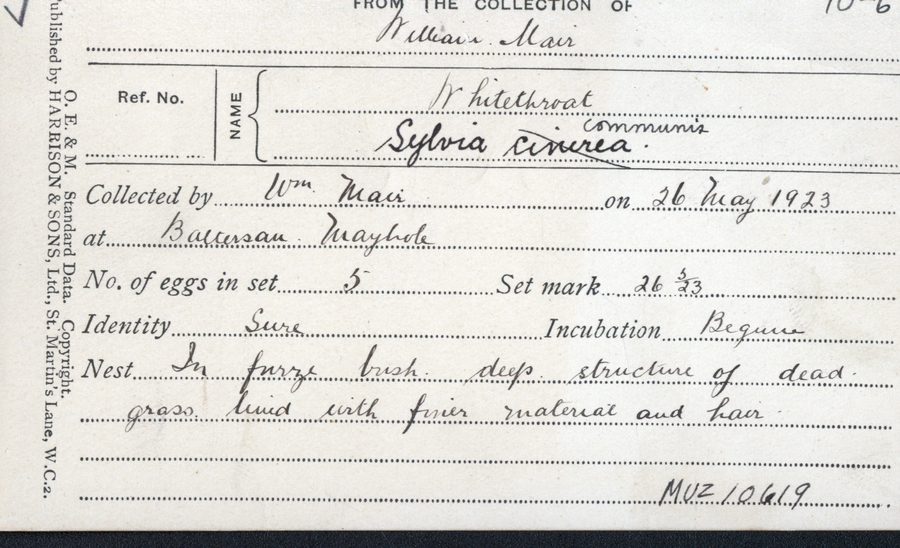 FROM THE COLLECTION OF
William Mair
Ref. No.
NAME
Whitethroat
communis
Sylvia cinerea.
Collected by Wm. Mair on 26 May 1923
at Baltersan. Maybole
No. of eggs in set 5 Set mark 26 5/23
Identity Sure Incubation Begun
Nest In furze bush. deep structure of dead
grass lined with finer material and hair
MUZ 10619
O. E. & M. Standard Data. Copyright.
Published by HARRISON & SONS, Ltd., St. Martin's Lane, W.C.2.